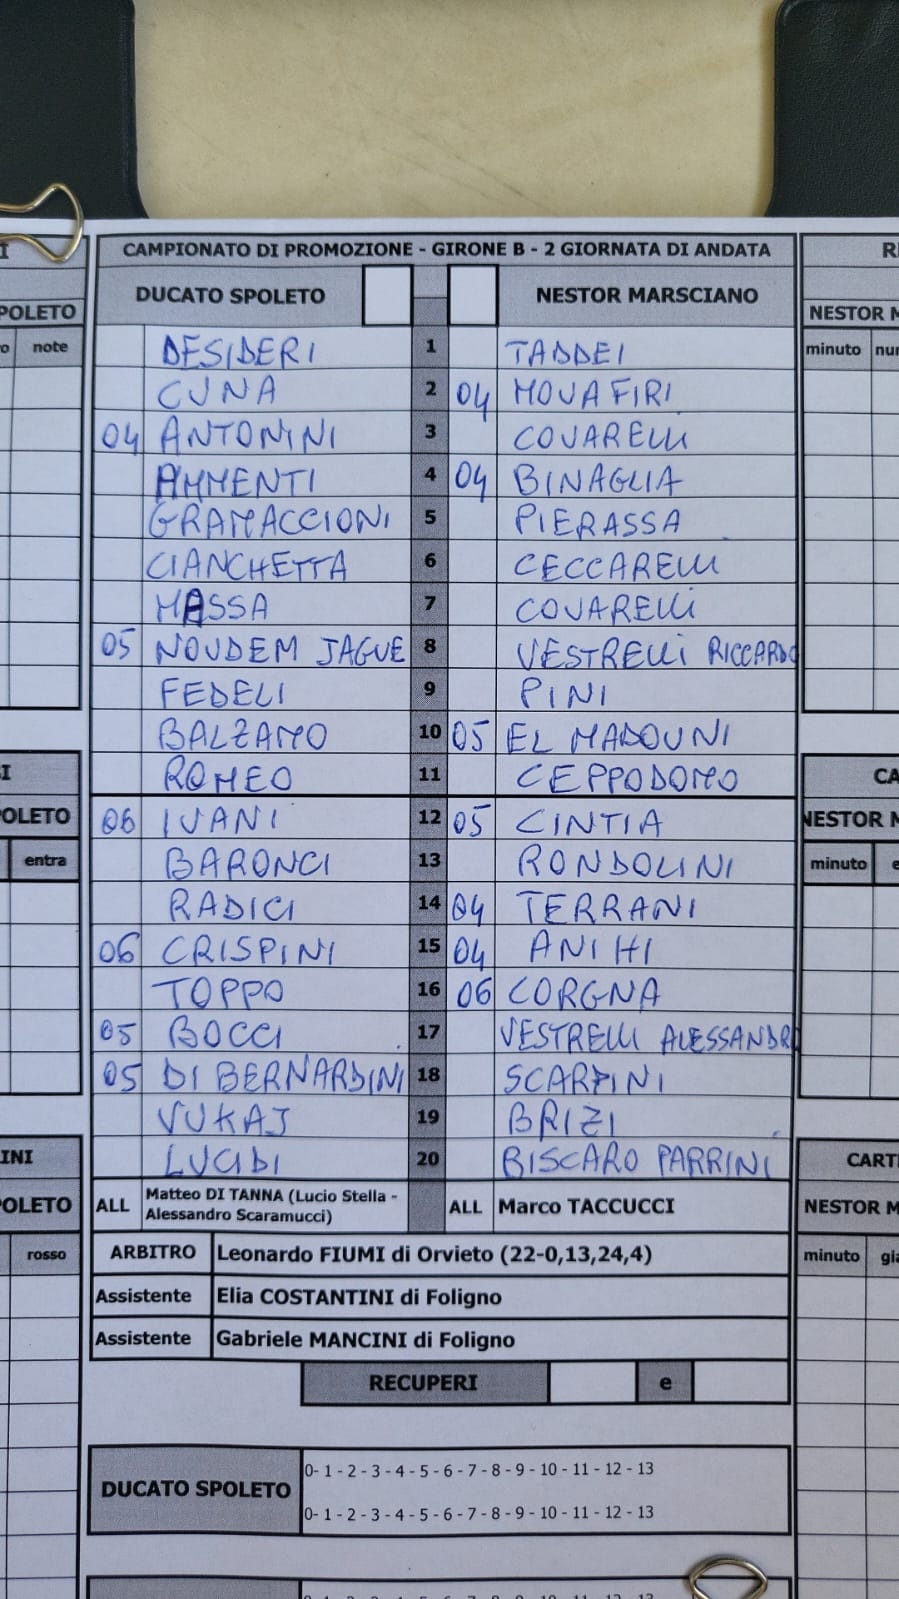 CAMPIONATO DI PROMOZIONE - GIRONE B - 2 GIORNATA DI ANDATA
DUCATO SPOLETO NESTOR MARSCIANO
POLETO NESTOR M
note minuto
DESIDERI 1 TADDEI
CUNA 2 04 MOUAFIRI
04 ANTONINI 3 COVARELLI
AMMENTI 4 04 BINAGLIA
GRAMACCIONI 5 PIERASSA
CIANCHETTA 6 CECCARELLI
MASSA 7 COVARELLI
05 NOUDEM JAGUE 8 VESTRELLI RICCARDO
FEDELI 9 PINI
BALZAMO 10 05 EL MADOUNI
ROMEO 11 CEPPODOMO
06 IVANI 12 05 CINTIA
BARONCI 13 RONDOLINI
RADICI 14 04 TERRANI
06 CRISPINI 15 04 ANIHI
TOPPO 16 06 CORGNA
05 BOCCI 17 VESTRELLI ALESSANDRO
05 DI BERNARDINI 18 SCARPINI
VUKAJ 19 BRIZI
LUCIDI 20 BISCARO PARRINI
OLETO NESTOR M
entra minuto
INI CARTI
POLETO NESTOR M
rosso minuto
ALL Matteo DI TANNA (Lucio Stella -
Alessandro Scaramucci) ALL Marco TACCUCCI
ARBITRO Leonardo FIUMI di Orvieto (22-0,13,24,4)
Assistente Elia COSTANTINI di Foligno
Assistente Gabriele MANCINI di Foligno
RECUPERI e
DUCATO SPOLETO
0- 1 - 2 - 3 - 4 - 5 - 6 - 7 - 8 - 9 - 10 - 11 - 12 - 13
0- 1 - 2 - 3 - 4 - 5 - 6 - 7 - 8 - 9 - 10 - 11 - 12 - 13